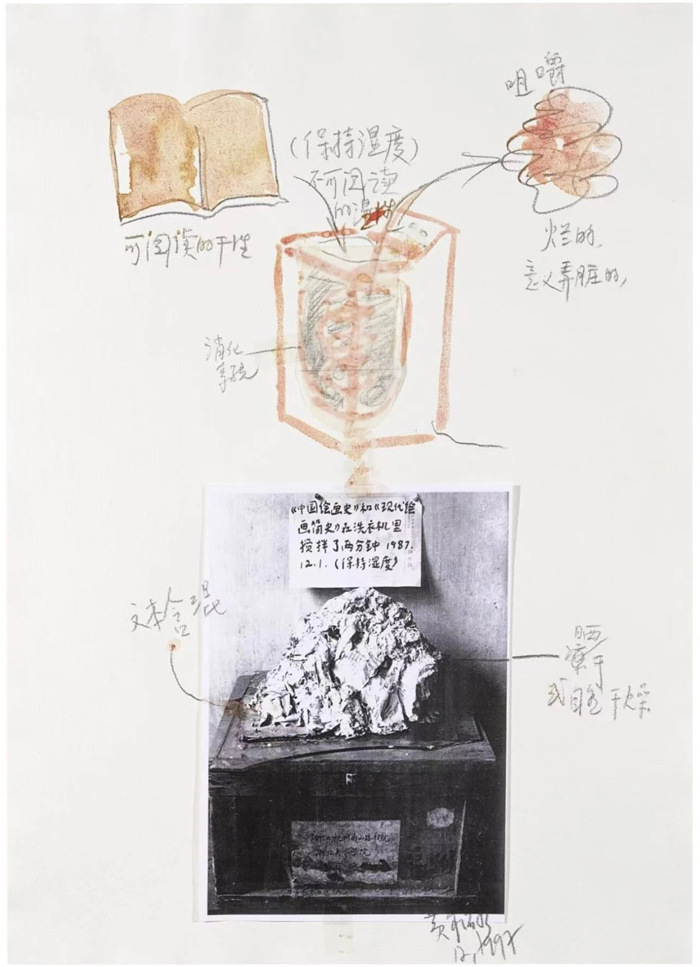 咀嚼
(保持湿度)
不可阅读
的湿性
可阅读的干性
烂的,
意义弄脏的,
消化
系统
《中国绘画史》和《现代绘
画简史》在洗衣机里
搅拌了两分钟 1987.
12.1. (保持湿度)
文本含混
晒
凉干
或自然干燥
黄永砯